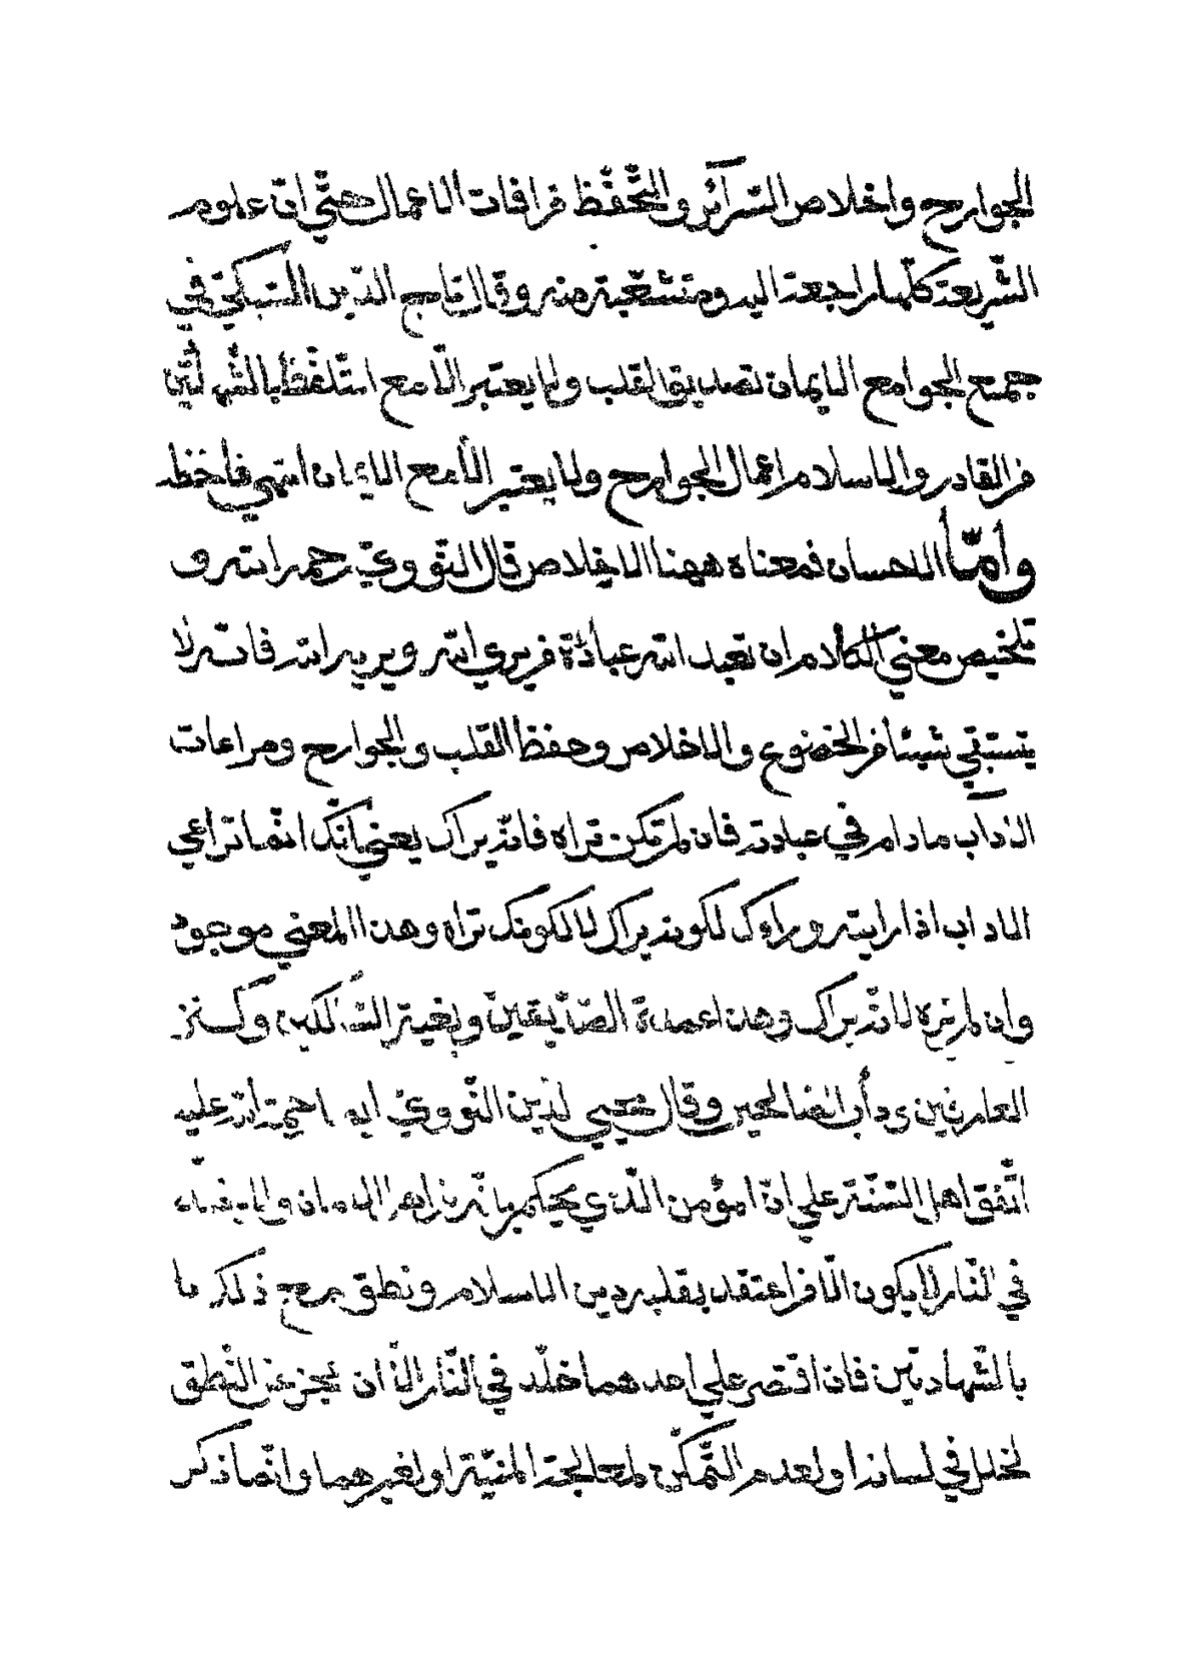 الجوارح واخلاص السّرآئر والتّحفّظ من افات الاعمال حتّي انّ علوم
الشّريعة كلّها راجعة اليه ومتشعّبة منه وقال تاج الدّين السّبكيّ في
جمع الجوامع الايمان تصديق القلب ولا يعتبر الّا مع التّلفّظ بالشّهادتين
من القادر والاسلام اعمال الجوارح ولا يعتبر الّا مع الايمان انتهي فاحفظه
وأمّا الاحسان فمعناه ههنا الاخلاص قال النّوويّ رحمه الله و
تلخيص معني الكلام ان تعبد الله عبادة من يري الله ويريه الله فانّه لا
يستبقي شيئا من الخضوع والاخلاص وحفظ القلب والجوارح ومراعات
الآداب مادام في عبادته فان لم تكن تراه فانّه يراك يعني انّك انّما تراعي
الاداب اذا رايته وراءك لكونه يراك لا لكونك تراه وهذا المعني موجود
وان لم تره لانّه يراك وهذا عمدة الصّدّيقين وبغية السّالكين وكنز
العارفين ودأب الصّالحين وقال محيي الدّين النّوويّ رحمة الله عليه
اتّفق اهل السّنّة علي انّ المؤمن الّذي يحكم بانّه من اهل الايمان ولا يخلّد
في النّار لا يكون الّا من اعتقد بقلبه دين الاسلام ونطق مع ذلك
بالشّهادتين فان اقتصر علي احدهما خلّد في النّار الّا ان يعجز عن النّطق
لخلل في لسانه او لعدم التّمكّن لمعالجة المنيّة او لغيرهما وانّما ذكر